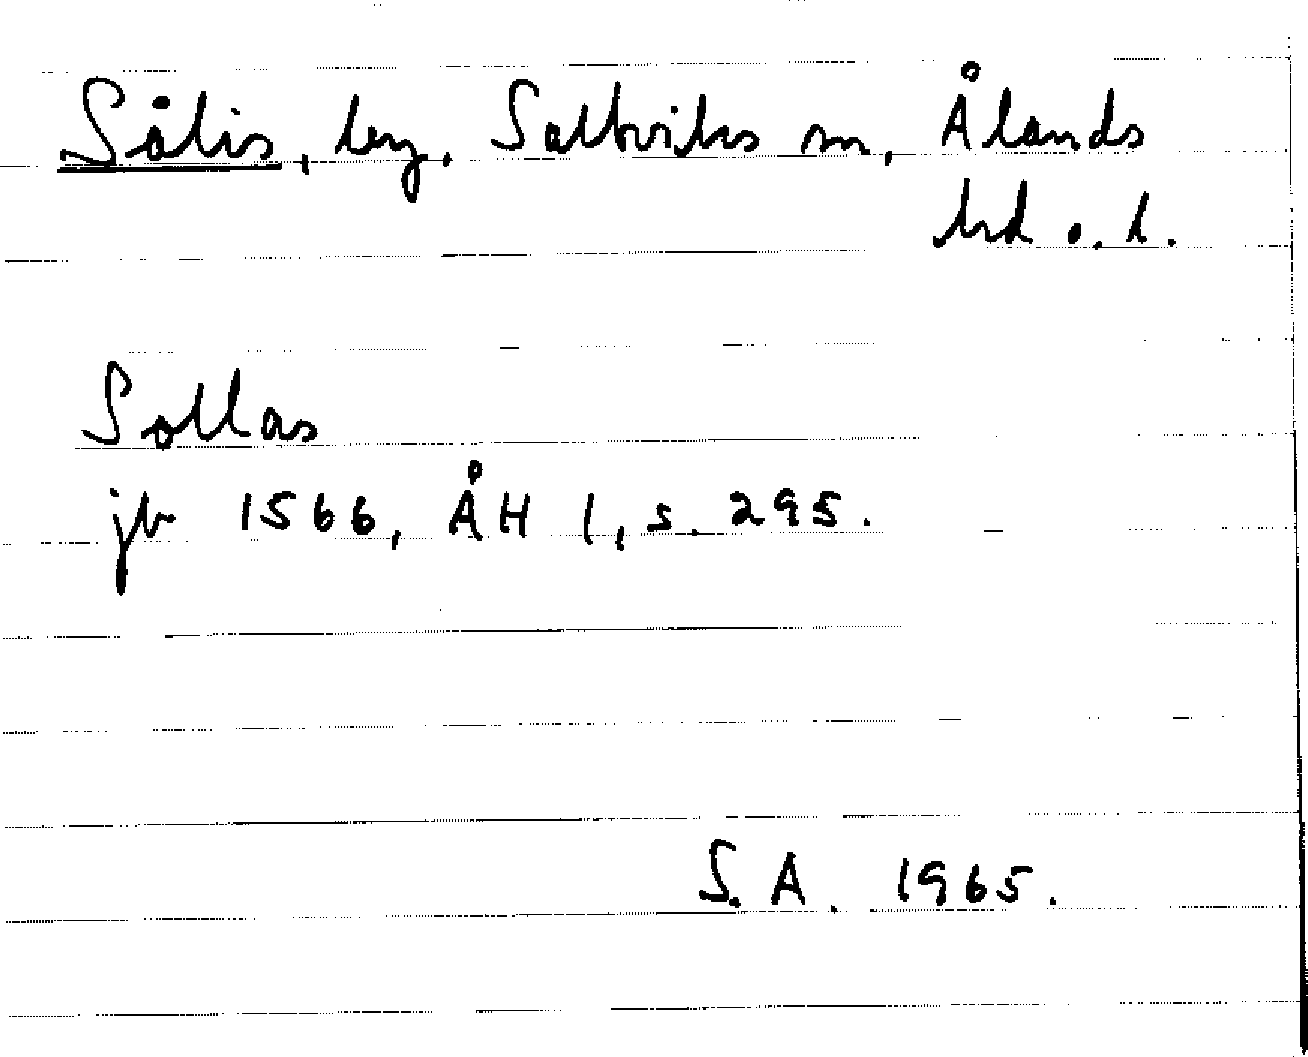 Sålis, by, Saltviks sn, Ålands
hd o. l.
Sollas
jb 1566, ÅH 1, s. 295.
S. A. 1965.